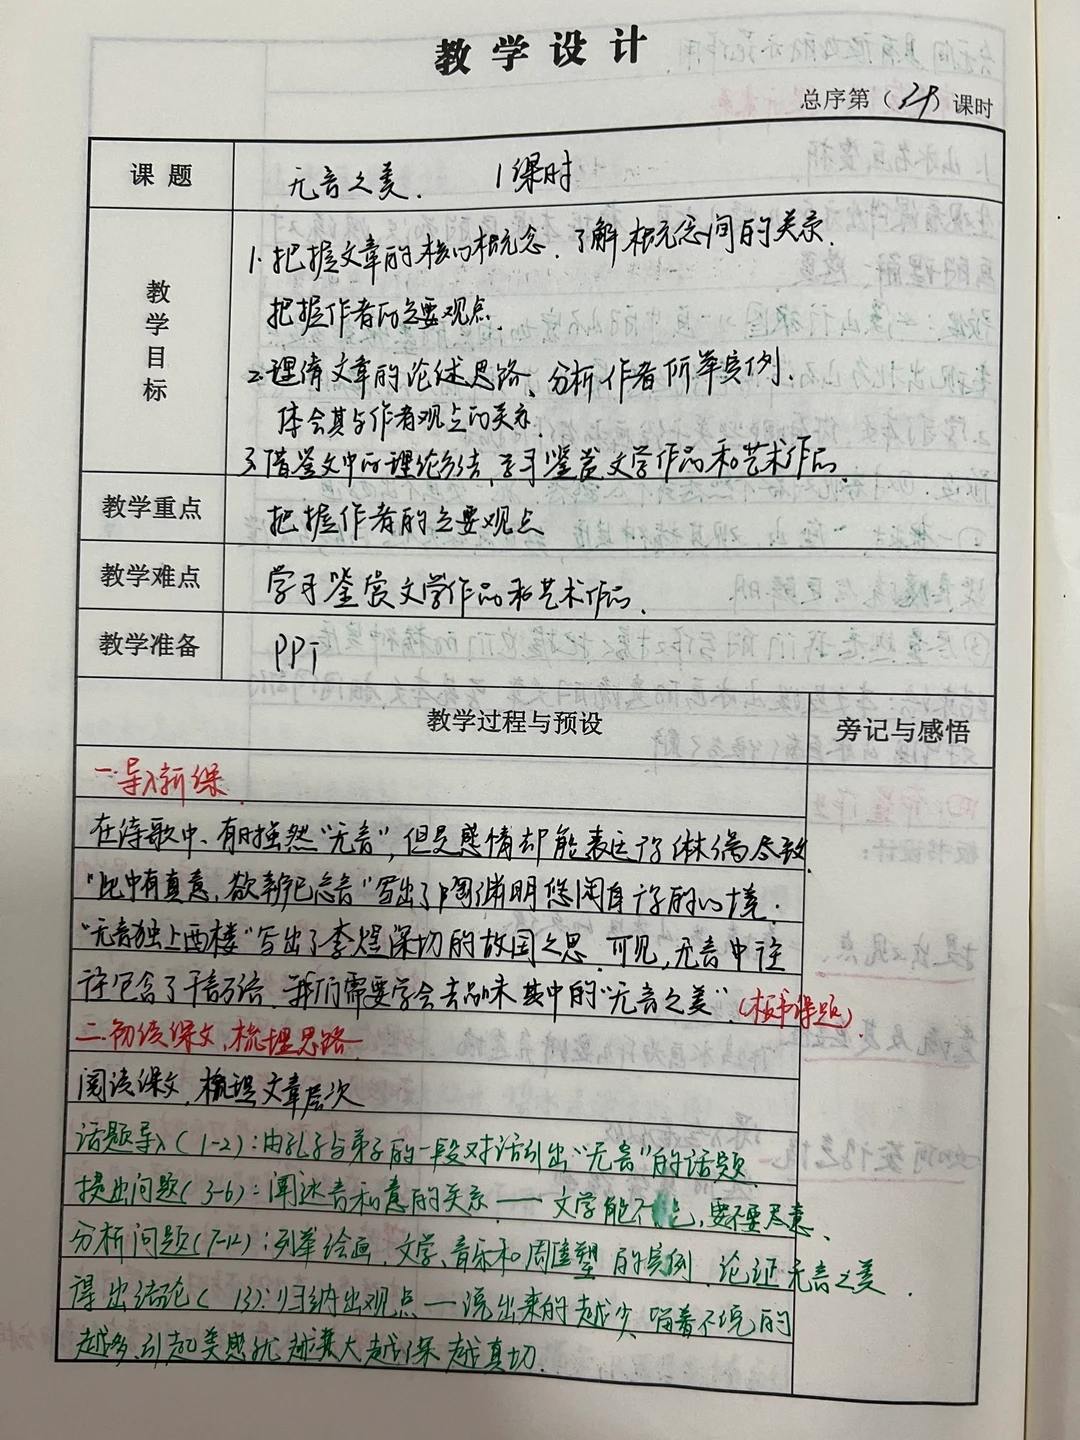 教学设计
总序第（29）课时
课题 无言之美. 1课时
教学目标
1. 把握文章的核心概念，了解概念间的关系.
把握作者的主要观点.
2. 理清文章的论述思路、分析作者所举实例.
体会其与作者观点的关系.
3. 借鉴文中的理论方法，学习鉴赏文学作品和艺术作品
教学重点 把握作者的主要观点
教学难点 学习鉴赏文学作品和艺术作品.
教学准备 PPT
教学过程与预设 旁记与感悟
一. 导入新课.
在诗歌中、有时虽然“无言”，但是感情却能表达得淋漓尽致.
“此中有真意，欲辩已忘言”写出了陶渊明悠闲自得的心境.
“无言独上西楼”写出了李煜深切的故国之思. 可见，无言中往
往包含了千言万语. 我们需要学会去品味其中的“无言之美”.(板书课题)
二. 初读课文，梳理思路
阅读课文，梳理文章层次
话题导入（1-2）：由孔子与弟子的一段对话引出“无言”的话题.
提出问题（3-6）：阐述言和意的关系 —— 文学能不能，要不要尽意、
分析问题（7-12）：列举绘画、文学、音乐和雕塑的实例，论证无言之美.
得出结论（13）：归纳出观点 — 说出来的越少，留着不说的
越多，引起美感就越大越深越真切.